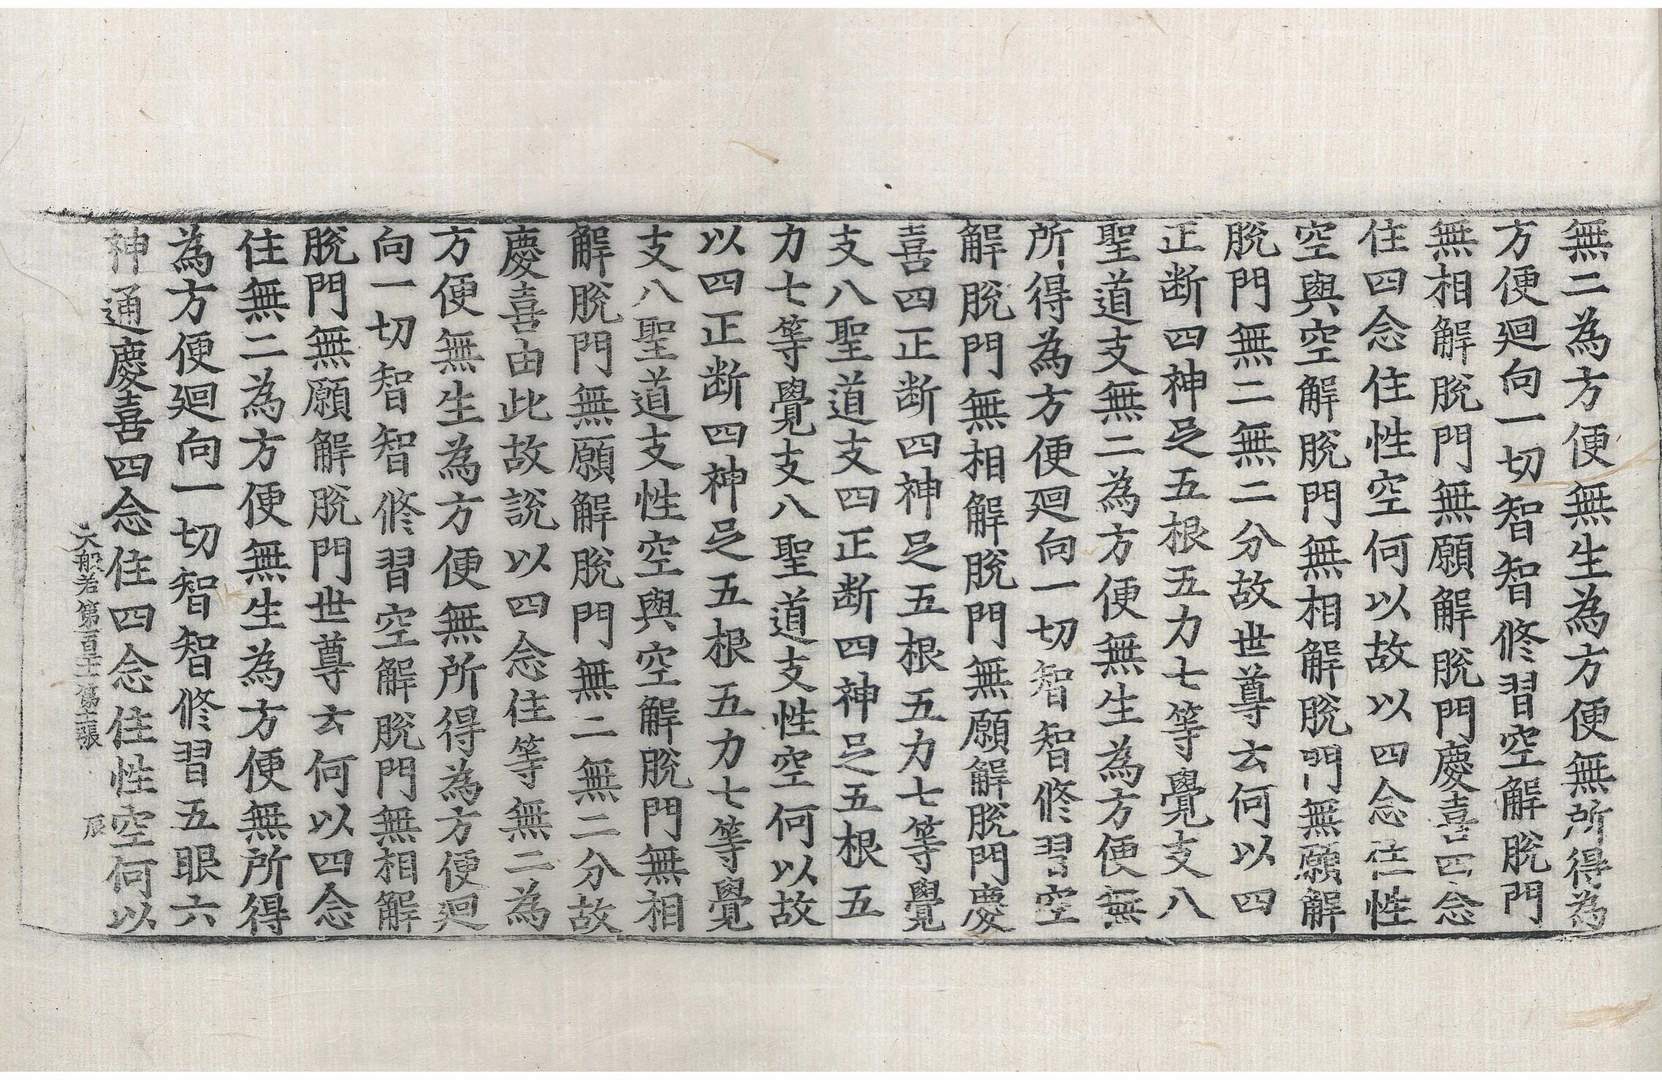 無二為方便無生為方便無所得為
方便迴向一切智智修習空解脫門
無相解脫門無願解脫門慶喜四念
住四念住性空何以故以四念住性
空與空解脫門無相解脫門無願解
脫門無二無二分故世尊云何以四
正断四神足五根五力七等覺支八
聖道支無二為方便無生為方便無
所得為方便迴向一切智智修習空
解脫門無相解脫門無願解脫門慶
喜四正断四神足五根五力七等覺
支八聖道支四正断四神足五根五
力七等覺支八聖道支性空何以故
以四正断四神足五根五力七等覺
支八聖道支性空與空解脫門無相
解脫門無願解脫門無二無二分故
慶喜由此故說以四念住等無二為
方便無生為方便無所得為方便迴
向一切智智修習空解脫門無相解
脫門無願解脫門世尊云何以四念
住無二為方便無生為方便無所得
為方便迴向一切智智修習五眼六
神通慶喜四念住四念住性空何以
大般若第一百 張 辰